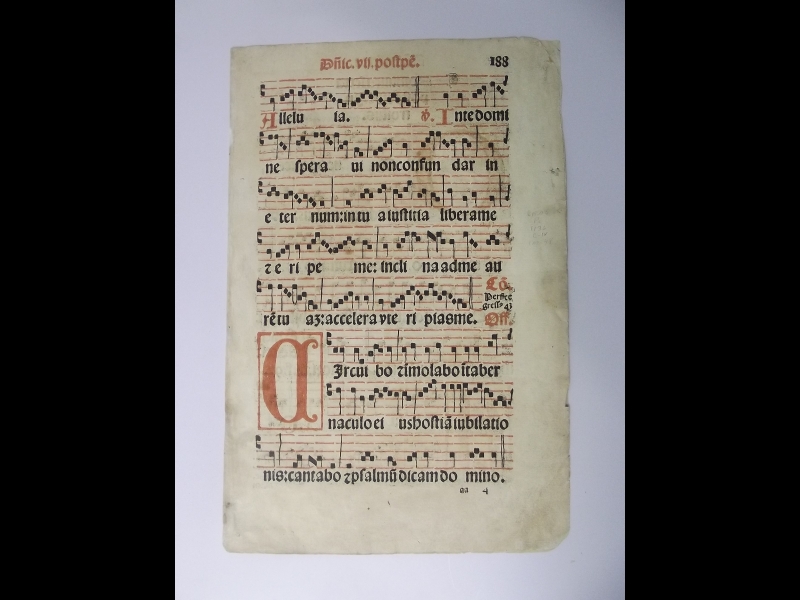 Dñic. vij. postpē. 188
Allelu ia. ꝟ. Inte domi
ne spera ui nonconfun dar in
e ter num: in tu a iustitia liberame
⁊ e ri pe me: incli na ad me au
rētu aꝫ: accelera vte ri piasme.
Cō.
Perfice
gress⁹ 43
Off.
CIrcui bo ⁊imolabo ī taber
naculo ei us hostiā iubilatio
nis: cantabo ⁊ psalmū dicam do mino.
aa 4